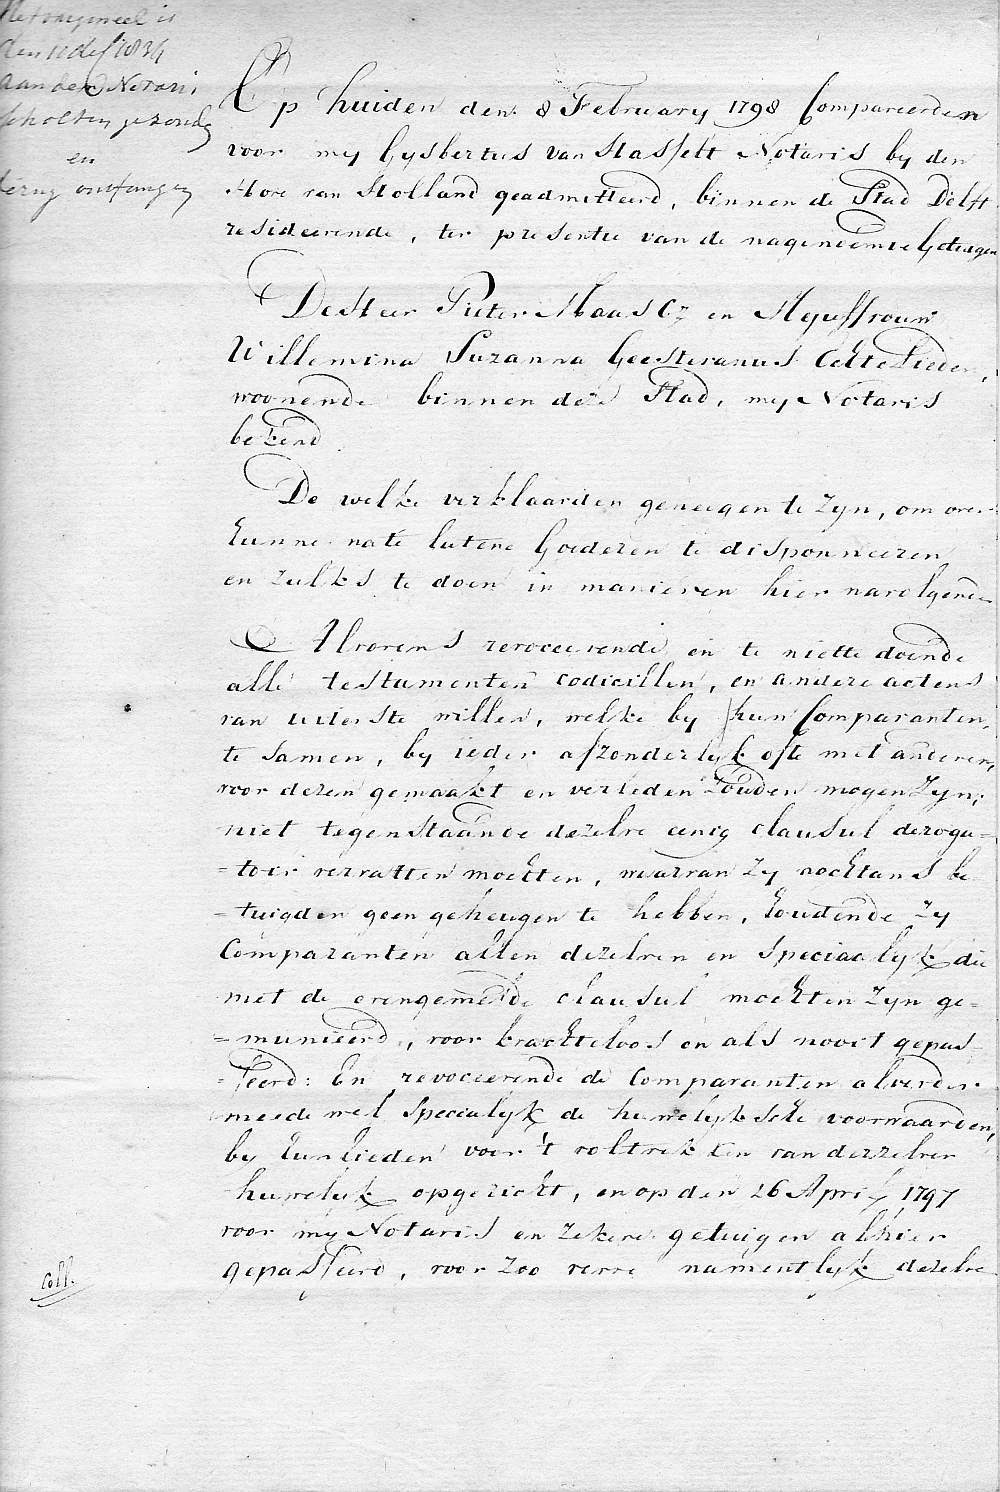 Het origineel is
den 11 de 1834
aan den Notaris
Scholten gezonde
en
terug ontfangen
Op huiden den 8 February 1798 Compareerden
voor my Gysbertus van Hasselt Notaris by den
Hove van Holland geadmitteerd, binnen de Stad Delft
resideerende, ter presentie van de nagenoemde Getuigen
De Heer Pieter Maas Cz en Mejuffrouw
Willemina Suzanna Geesteranus Echte Lieden,
woonende binnen deze Stad, my Notaris
bekend
De welke verklaarden geneegen te zyn, om over
hunne nate latene Goederen te disponneeren
en zulks te doen in manieren hier navolgende
Alvorens revoceerende, en te niette doende
alle testamenten codicillen, en andere actens
van uiterste willen, welke by hun Comparanten,
te samen, by ieder afzonderlyk ofte met anderen,
voor dezen gemaakt en verleden zouden mogen zyn;
niet tegenstaande dezelve eenig clausul deroga=
=toir vervatten mochten, waarvan zy nochtans be
=tuigden geen geheugen te hebben, houdende zy
Comparanten allen dezelven en speciaalyk die
met de evengemelde clausul mochten zyn ge=
=munieerd, voor krachteloos en als nooit gepas=
=seerd: En revoceerende de Comparanten alverder
meede wel specialyk de huwelyksche voorwaarden,
by hunlieden voor 't voltrekken van derzelver
huwelyk opgericht, en op den 26 April 1797
voor my Notaris en zekere getuigen alhier
gepasseerd, voor zoo verre namentlyk dezelve
Coll.